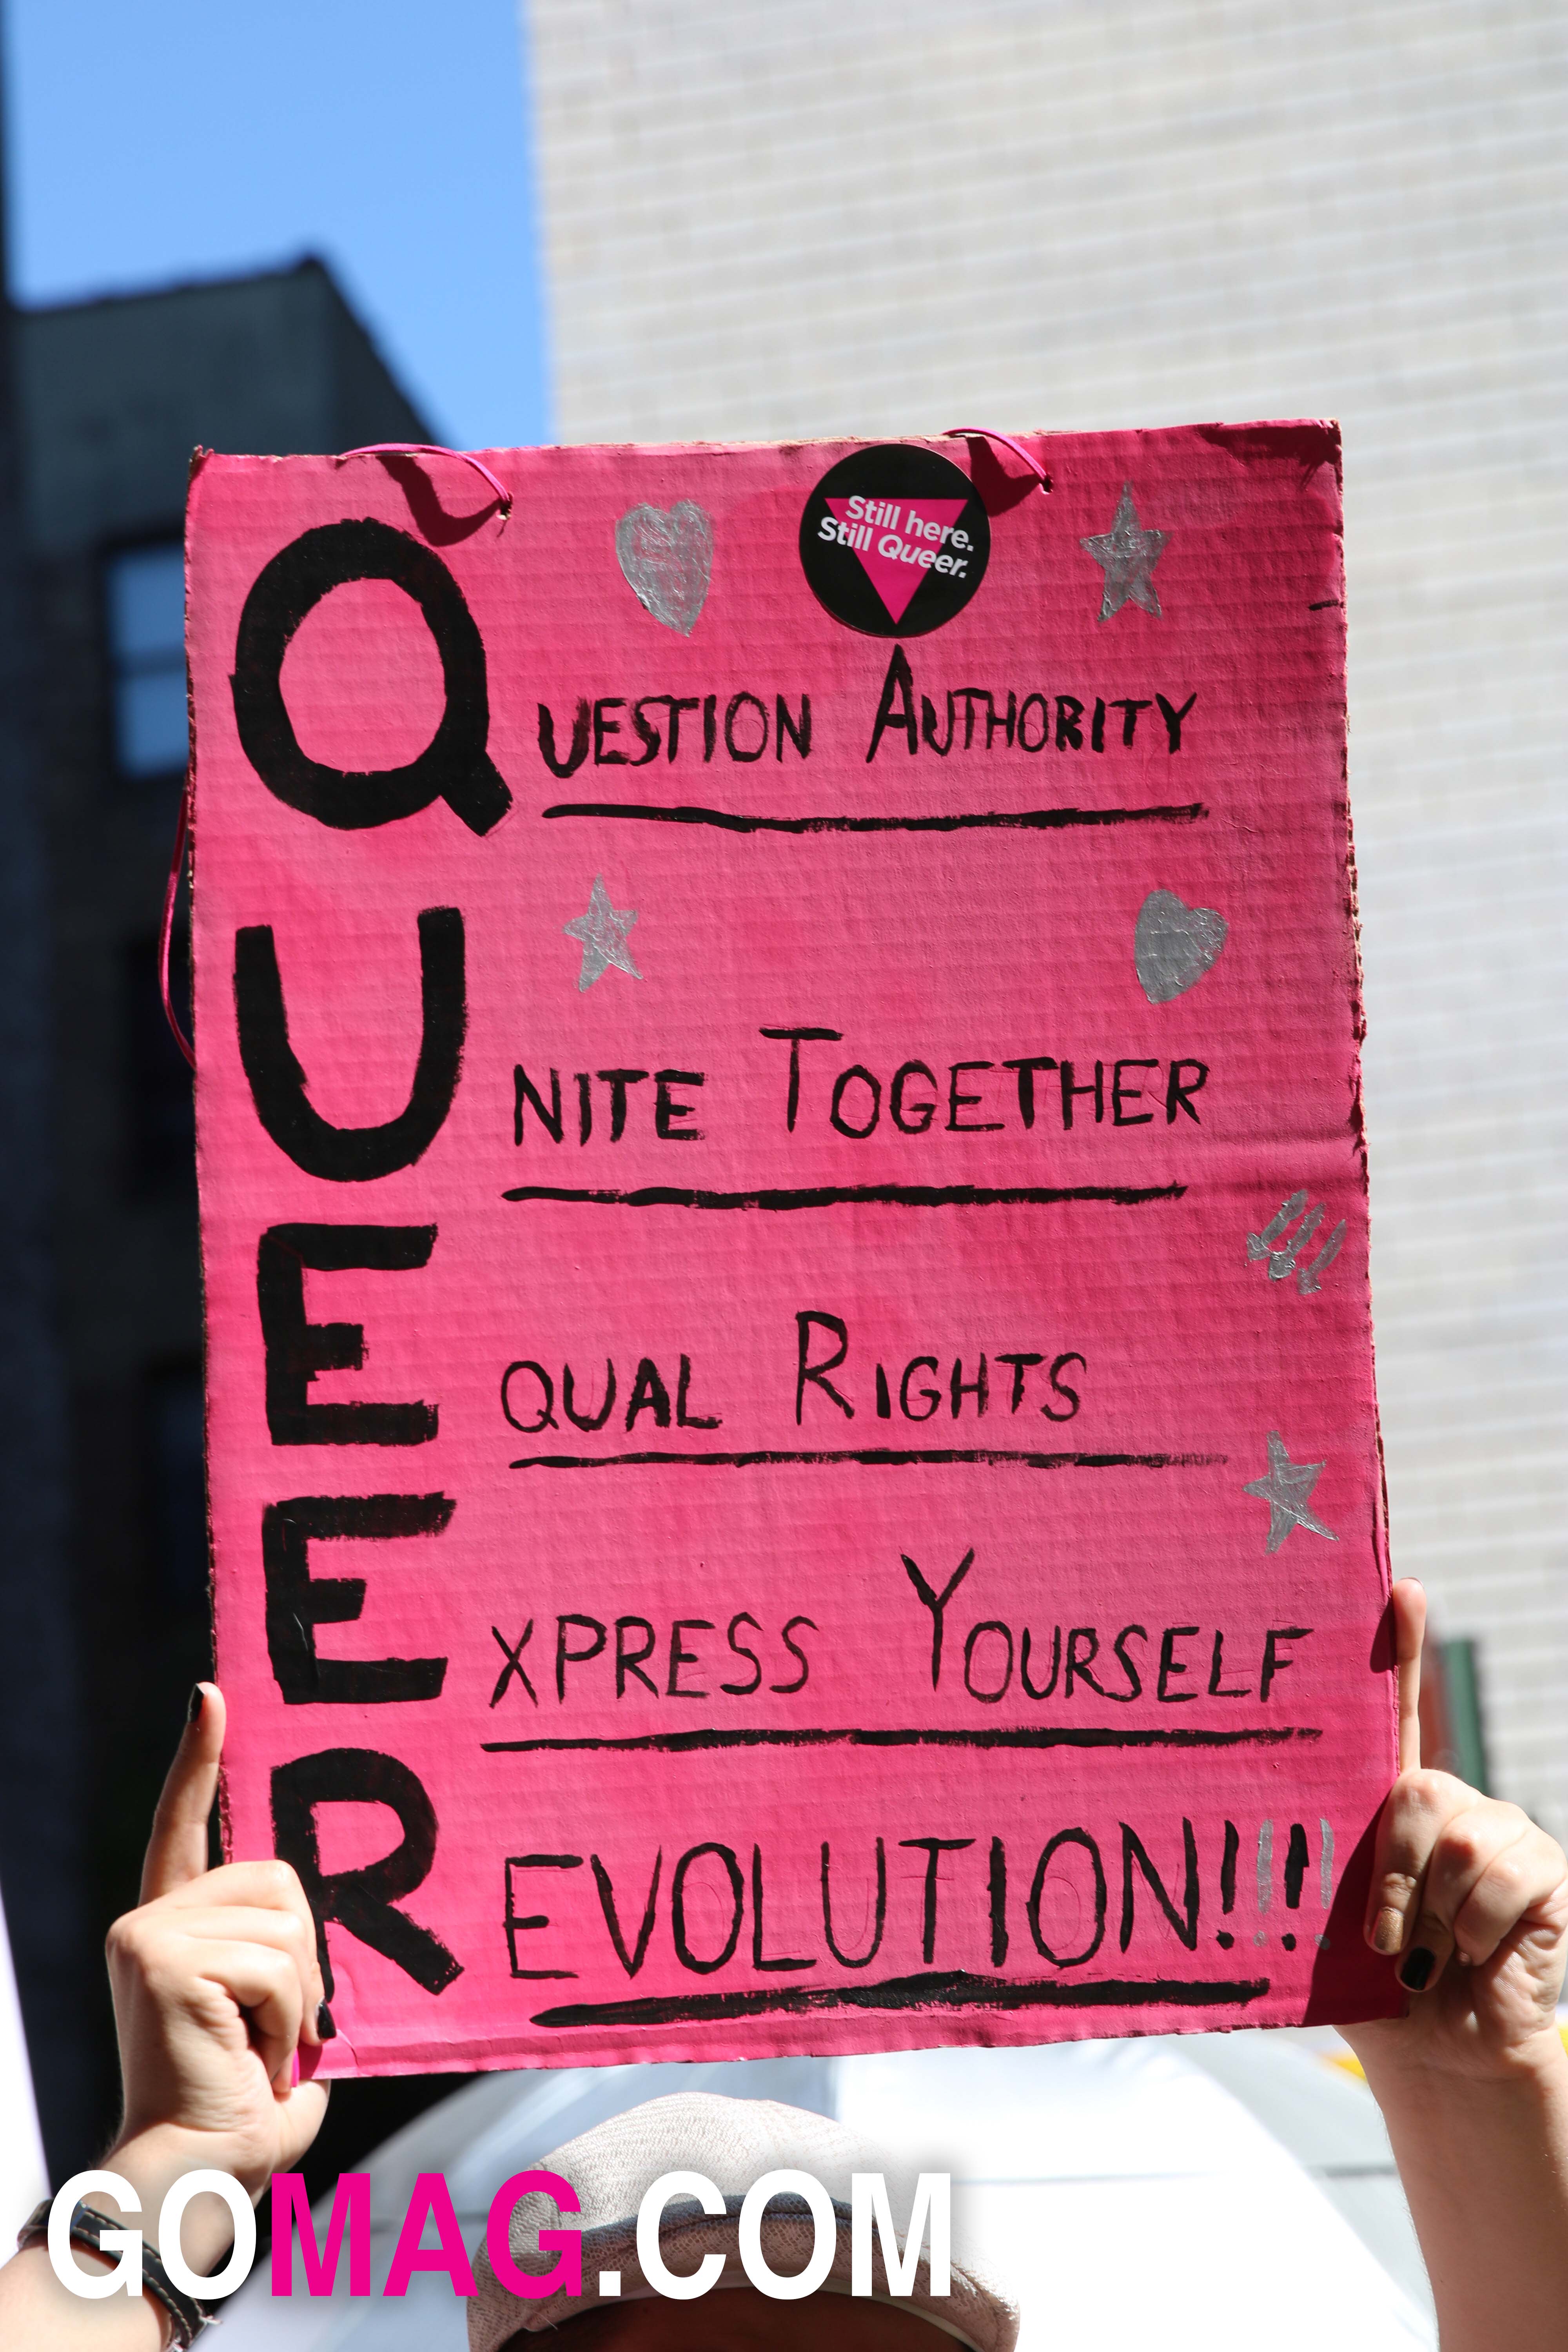 Still here.
Still Queer.
QUESTION AUTHORITY
UNITE TOGETHER
EQUAL RIGHTS
EXPRESS YOURSELF
REVOLUTION!!!!
GOMAG.COM